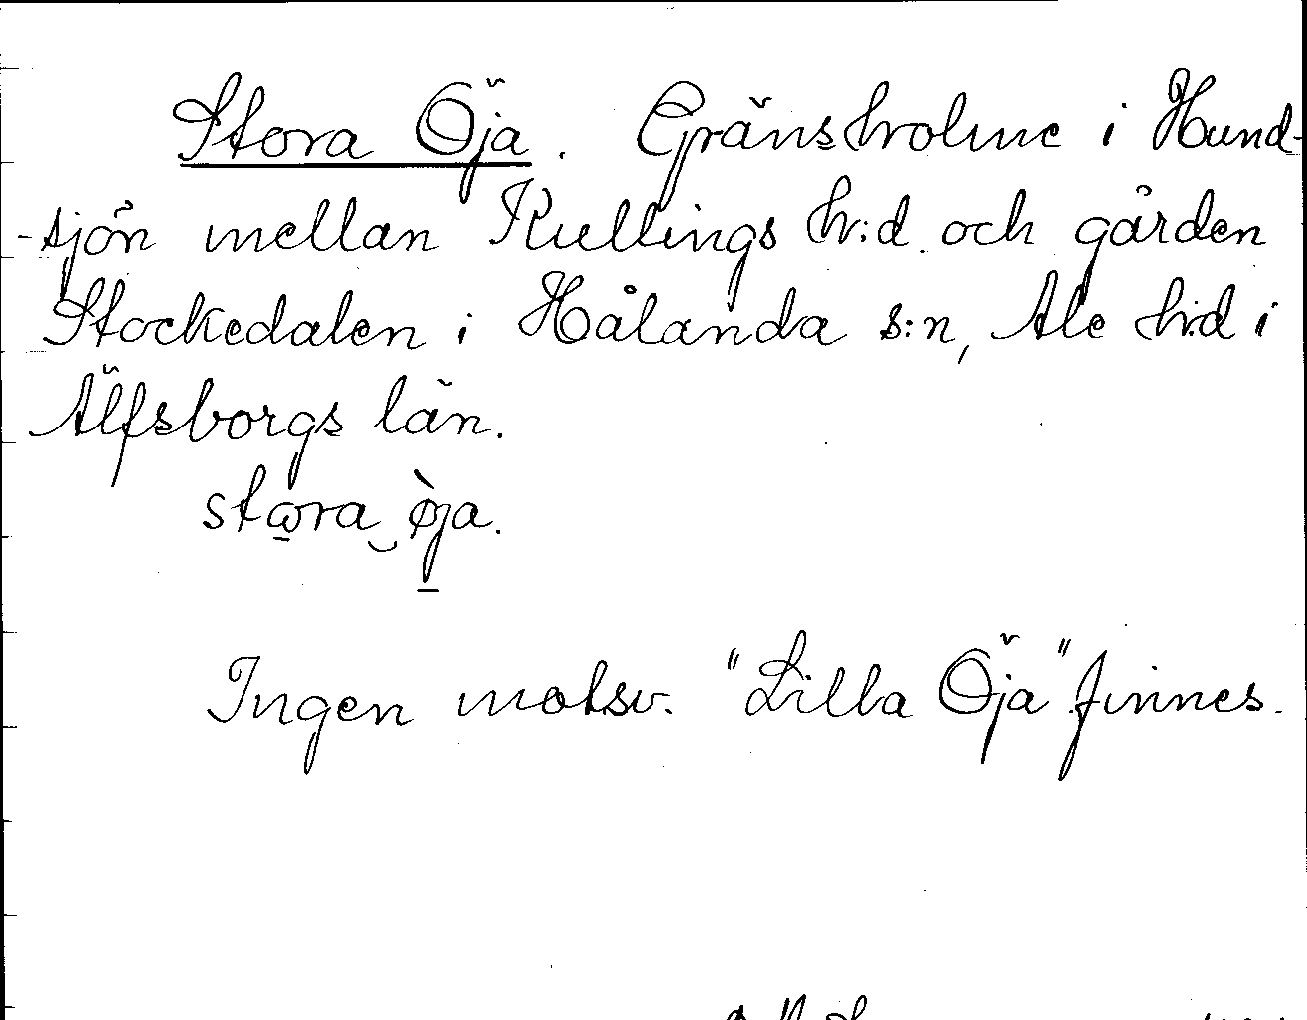 Stora Öja. Gränsholme i Hund-
-sjön mellan Kullings h:d och gården
Stockedalen i Hålanda s:n, Ale h:d i
Älfsborgs län.
stɷra‿ø̀ja.
Ingen motsv. "Lilla Öja" finnes.